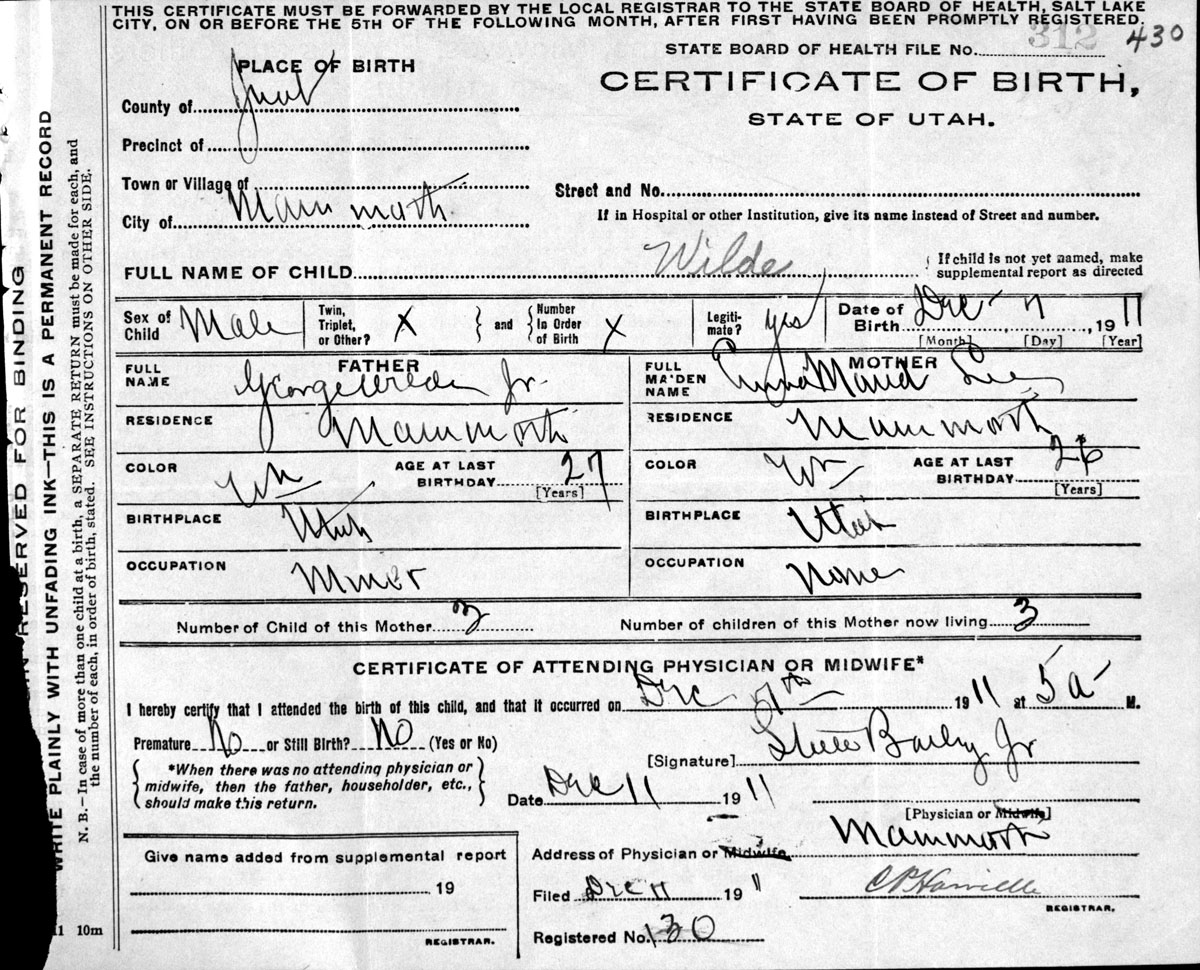 THIS CERTIFICATE MUST BE FORWARDED BY THE LOCAL REGISTRAR TO THE STATE BOARD OF HEALTH, SALT LAKE
CITY, ON OR BEFORE THE 5TH OF THE FOLLOWING MONTH, AFTER FIRST HAVING BEEN PROMPTLY REGISTERED.
STATE BOARD OF HEALTH FILE No. 312 430
PLACE OF BIRTH
CERTIFICATE OF BIRTH,
STATE OF UTAH.
County of Juab
Precinct of
Town or Village of
Street and No.
City of Mammoth
If in Hospital or other Institution, give its name instead of Street and number.
FULL NAME OF CHILD Wilde
If child is not yet named, make
supplemental report as directed
Sex of Child Male
Twin, Triplet, or Other? X
and
Number In Order of Birth X
Legitimate? yes
Date of Birth Dec 7, 1911
[Month] [Day] [Year]
FATHER
FULL NAME George Wilde Jr.
RESIDENCE Mammoth
COLOR Wh
AGE AT LAST BIRTHDAY 27
[Years]
BIRTHPLACE Utah
OCCUPATION Miner
MOTHER
FULL MAIDEN NAME Maud
RESIDENCE Mammoth
COLOR Wh
AGE AT LAST BIRTHDAY 26
[Years]
BIRTHPLACE Utah
OCCUPATION None
Number of Child of this Mother 3
Number of children of this Mother now living 3
CERTIFICATE OF ATTENDING PHYSICIAN OR MIDWIFE*
I hereby certify that I attended the birth of this child, and that it occurred on Dec 7th 1911 at 5 a M.
Premature No or Still Birth? No (Yes or No)
*When there was no attending physician or
midwife, then the father, householder, etc.,
should make this return.
[Signature] Steele Bailey Jr
Date Dec 11 1911
[Physician or Midwife]
Address of Physician or Midwife Mammoth
Filed Dec 11 1911
REGISTRAR.
Registered No. 130
Give name added from supplemental report
19
REGISTRAR.
RESERVED FOR BINDING
WRITE PLAINLY WITH UNFADING INK—THIS IS A PERMANENT RECORD
N. B.—In case of more than one child at a birth, a SEPARATE RETURN must be made for each, and
the number of each, in order of birth, stated. SEE INSTRUCTIONS ON OTHER SIDE.
10m